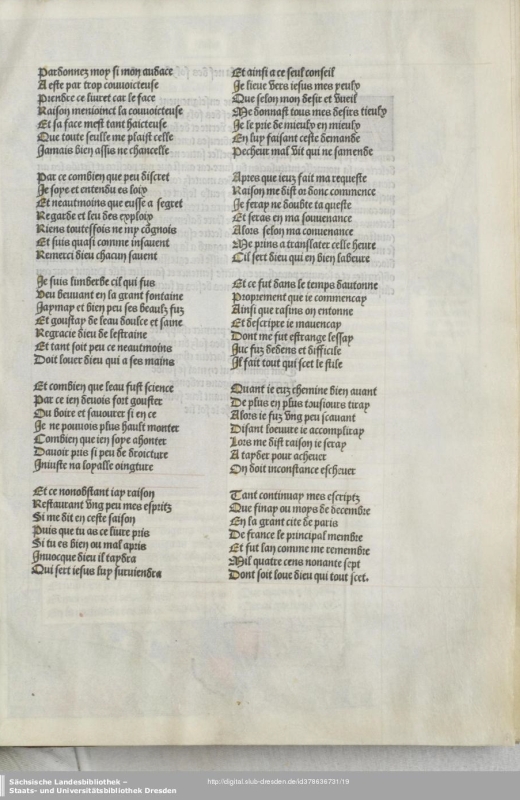 Pardonnez moy si mon audace
A este par trop couuoicteuse
Prendre ce liuret car le face
Raison menioinct la couuoicteuse
Et sa face mest tant haicteuse
Que toute seulle me plaist celle
Jamais bien assis ne chancelle
Par ce combien que peu discret
Je soye et entendu es loix
Et neautmoins que eusse a segret
Regarde et leu des exploix
Riens toutesfois ne my cõgnois
Et suis quasi comme insauent
Remerci dieu chacun sauent
Je suis limberbe cil qui fus
Veu beuuant en la grant fontaine
Jaymay et bien peu ses beaulx fuz
Et goustay de leau doulce et saine
Regracie dieu de lestraine
Et tant soit peu ce neautmoins
Doit louer dieu qui a ses mains
Et combien que leau fust science
Par ce ien deuois fort gouster
Ou boire et sauourer si en ce
Je ne pouuois plus hault monter
Combien que ien soye ahonter
Dauoir pris si peu de droicture
Iniuste na loyalle oingture
Et ce nonobstant iay raison
Restaurant vng peu mes espritz
Si me dit en ceste saison
Puis que tu as ce liure pris
Si tu es bien ou mal apris
Inuocque dieu il taydra
Qui sert iesus luy suruiendra
Et ainsi a ce seul conseil
Je lieue vers iesus mes yeulx
Que selon mon desir et vueil
Me donnast tous mes desirs tieulx
Je le prie de mieulx en mieulx
En luy faisant ceste demande
Pecheur mal vit qui ne samende
Apres que ieuz fait ma requeste
Raison me dist or donc commence
Je feray ne doubte ta queste
Et seras en ma souuenance
Alors selon ma conuenance
Me prins a translater celle heure
Cil sert dieu qui en bien labeure
Et ce fut dans le temps dautonne
Proprement que ie commencay
Ainsi que rasins on entonne
Et descripre ie mauencay
Dont me fut estrange lessay
Juc fuz dedens et difficile
Il fait tout qui scet le stile
Quant ie euz chemine bien auant
De plus en plus tousiours tiray
Alors ie fuz vng peu scauant
Disant loeuure ie accompliray
Lors me dist raison ie seray
A tayder pour acheuer
On doit inconstance escheuer
Tant continuay mes escriptz
Que finay ou moys de decembre
En la grant cite de paris
De france le principal membre
Et fut lan comme me remembre
Mil quatre cens nonante sept
Dont soit loue dieu qui tout scet.
Sächsische Landesbibliothek –
Staats- und Universitätsbibliothek Dresden
http://digital.slub-dresden.de/id378636731/19